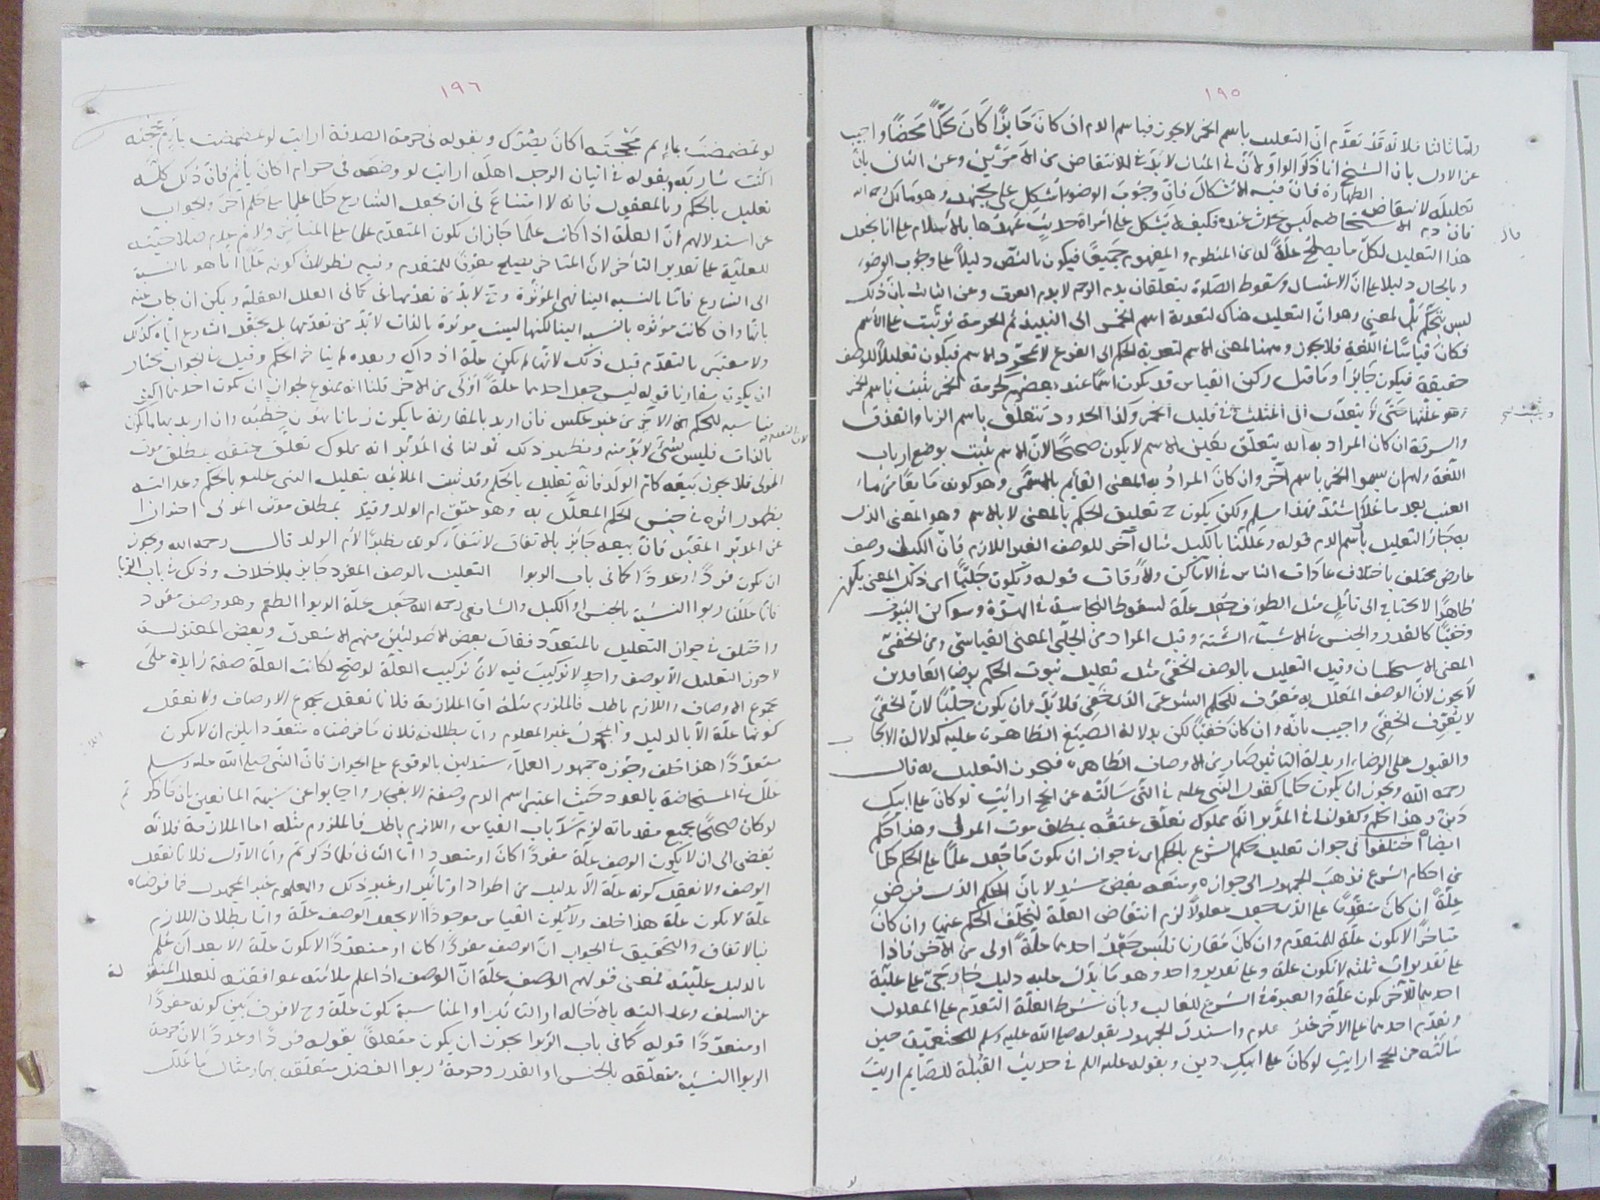 ١٩٥
عن الاول بان الشيخ انما ذكر الواو لان في المثال لا بد في الانتقاض من الامرين وعن الثاني بان
هذا التعليل لكل ما يصلح علة لدى المنظوم والمفهوم جميعا فيكون بالنص دليلا على وجوب الوضوء
وبالحال دليلا على ان الاغتسال وسقوط الصلوة يتعلقان بدم الرحم لا بدم العرق وعن الثالث بان ذلك
ليس لمعنى وهو ان التعليل هناك لتعدية اسم الخمر الى النبيذ ثم الحرمة ترتبت على الاسم
فكان قياسا في اللغة فلا يجوز وههنا لمعنى الاسم لتعدية الحكم الى الفرع لا لمجرد الاسم فيكون تعليلا للوصف
حقيقة فيكون جايزا وما قيل ركن القياس قد يكون اسما عند بعضهم كحرمة الخمر يثبت باسم الخمر
والسرقة ان كان المراد به انه يتعلق بعين الاسم لا يكون صحيحا لان الاسم يثبت بوضع ارباب
اللغة ولهم ان يسموا الخمر باسم آخر وان كان المراد به المعنى القائم بالمسمى وهو كونه مايعا من ماء
العنب بعد ما غلا واشتد فهذا مسلم ولكن يكون ح تعليق الحكم بالمعنى لا بالاسم وهو المعنى الذي
به جاز التعليل باسم الدم قوله وعللنا بالكيل مثال آخر للوصف الغير اللازم فان الكيل وصف
عارض يختلف باختلاف عادات الناس في الاماكن والاوقات قوله ويكون جليا اى ذلك المعنى يكون
ظاهرا لا يحتاج الى تأمل مثل الطواف جعل علة لسقوط النجاسة في الهرة وسواكن البيوت
وخفيا كالقدر والجنس في الاشياء الستة وقيل المراد من الجلي المعنى القياسي ومن الخفي
المعنى الاستحساني وقيل التعليل بالوصف الخفي مثل تعليل ثبوت الحكم برضا العاقدين
لا يجوز لان الوصف المعلل به معرف للحكم الشرعي الذي خفي فلا بد وان يكون جليا لان الخفي
لا يعرف الخفي واجيب بانه وان كان خفيا لكن بدلالة الصيغ الظاهرة عليه كدلالة الايجاب
والقبول على الرضاء او بدلالة التاثير صار من الاوصاف الظاهرة فيجوز التعليل به قال
رحمه الله ويجوز ان يكون حكما كقول النبي عليه في التي سالته عن الحج ارايت لو كان على ابيك
دين وهذا حكم وكقولنا في المدبر انه مملوك تعلق عتقه بمطلق موت المولى وهذا حكم
ايضا اختلفوا في جواز تعليل حكم الشرع بالحكم اى في جواز ان يكون ما جعل علما على الحكم حكما
من احكام الشرع فذهب الجمهور الى جوازه ومنعه بعض مستدلا بان الحكم الذى فرض
علة ان كان متقدما على الذى جعل معلولا لزم انتقاض العلة لتخلف الحكم عنها وان كان
متاخرا لا يكون علة للمتقدم وان كان مقارنا فليس جعل احدهما علة اولى من الآخر فاذا
على تقديرات ثلثة لا تكون علة وعلى تقدير واحد وهو ما يدل عليه دليل خارجي على علية
احدهما للآخر يكون علة والعبرة في الشرع للغالب وبان شرط العلة التقدم على المعلول
وتقدم احدهما على الآخر غير معلوم واستدل الجمهور بقوله صلى الله عليه وسلم للخثعمية حين
سألته عن الحج ارايت لو كان على ابيك دين وبقوله عليه السلم في حديث القبلة للصايم ارايت
١٩٦
لو تمضمضت بماء ثم مججته اكان يضرك وبقوله في حرمة الصدقة ارايت لو تمضمضت بماء ثم مججته
اكنت شاربه وبقوله في اتيان الرجل اهله ارايت لو وضعه في حرام اكان يأثم فان ذلك كله
تعليل بالحكم وبالمعقول فانه لا امتناع في ان يجعل الشارع حكما علما على حكم آخر والجواب
عن استدلالهم ان العلة اذا كانت علما جاز ان يكون المتقدم علما على المتاخر ولا نم عدم صلاحيته
للعلية على تقدير التأخر لان المتاخر يصلح معرفا للمتقدم وفيه نظر لان كونه علما انما هو بالنسبة
الى الشارع فاما بالنسبة الينا فهي المؤثرة وح لا بد من تقدمها كما في العلل العقلية ويمكن ان يجاب عنه
بانها وان كانت مؤثرة بالنسبة الينا لكنها ليست موثرة بالذات لا بد من تقدمها بل بجعل الشارع اياه كذلك
ولا معتبر بالتقدم قبل ذلك لانها لم يكن علة اذ ذاك وبعده لم يتاخر الحكم وقيل في الجواب نختار
ان يكون مقارنا قوله ليس جعل احدهما علة اولى من الآخر قلنا انه ممنوع لجواز ان يكون احدهما اكثر
مناسبة للحكم الآخر من غير عكس فان اريد بالمقارنة ما يكون زمانا
بالذات فليس بشئ لا بد منه ونظير ذلك قولنا في المدبر انه مملوك تعلق عتقه بمطلق موت
المولى فلا يجوز بيعه كام الولد فانه تعليل بالحكم وقد ثبت الملايمة بتعليل النبي عليه بالحكم وعدالته
بظهور اثره في جنس الحكم المعلل به وهو عتق ام الولد وقيد بمطلق موت المولى احترازا
عن المدبر المقيد فان بيعه جائز بالاتفاق قال رحمه الله ويجوز
ان يكون فردا وعددا كما في باب الربوا التعليل بالوصف المفرد جايز بلا خلاف وذلك في باب الربا
فانا عللنا ربوا النسئة بالجنس او الكيل والشافعي رحمه الله جعل علة الربوا الطعم وهو وصف مفرد
واختلف في جواز التعليل بالمتعدد فقال بعض الاصوليين منهم الاشعري وبعض المعتزلة
لا يجوز التعليل الا بوصف واحد لا تركيب فيه لان تركيب العلة لو صح لكانت العلة صفة زايدة على
مجموع الاوصاف واللازم باطل فالملزوم مثله اما الملازمة فلانا نعقل مجموع الاوصاف ولا نعقل
كونها علة الا بالدليل والمجهول غير المعلوم واما بطلانه فلان ما فرضناه متعددا يلزم ان لا يكون
متعددا هذا خلف وجوزه جمهور العلماء مستدلين بالوقوع على الجواز فان النبي صلى الله عليه وسلم
علل في المستحاضة بالعدد حيث اعتبر اسم الدم وصفة الانفجار واجابوا عن شبهة المانعين بان ما ذكرتم
لو كان صحيحا بجميع مقدماته لزم سد باب القياس واللازم باطل فالملزوم مثله اما الملازمة فلانه
يفضى الى ان لا يكون الوصف علة مفردا كان او متعددا اما الثاني فلما ذكرتم واما الاول فلانا نعقل
الوصف ولا نعقل كونه علة الا بدليل من اطراد او تاثير او غير ذلك والمعلوم غير المجهول فما فرضناه
علة لا يكون علة هذا خلف ولا يكون القياس موجودا الا بجعل الوصف علة واما بطلان اللازم
فبالاتفاق والتحقيق في الجواب ان الوصف مفردا كان او متعددا لا يكون علة الا بعد ان علم
بالدليل عليته فمعنى قولهم الوصف علة ان الوصف اذا علم ملائمته بموافقته للعلل المنقولة
عن السلف وعدالته بالاخالة او التاثير او المناسبة يكون علة وح لا فرق بين كونه مفردا
او متعددا قوله كما في باب الربوا يجوز ان يكون متعلقا بقوله فردا وعددا لان حرمة
الربوا النسئة متعلقة بالجنس او القدر وحرمة ربوا الفضل متعلقة بهما ومثال ما علل